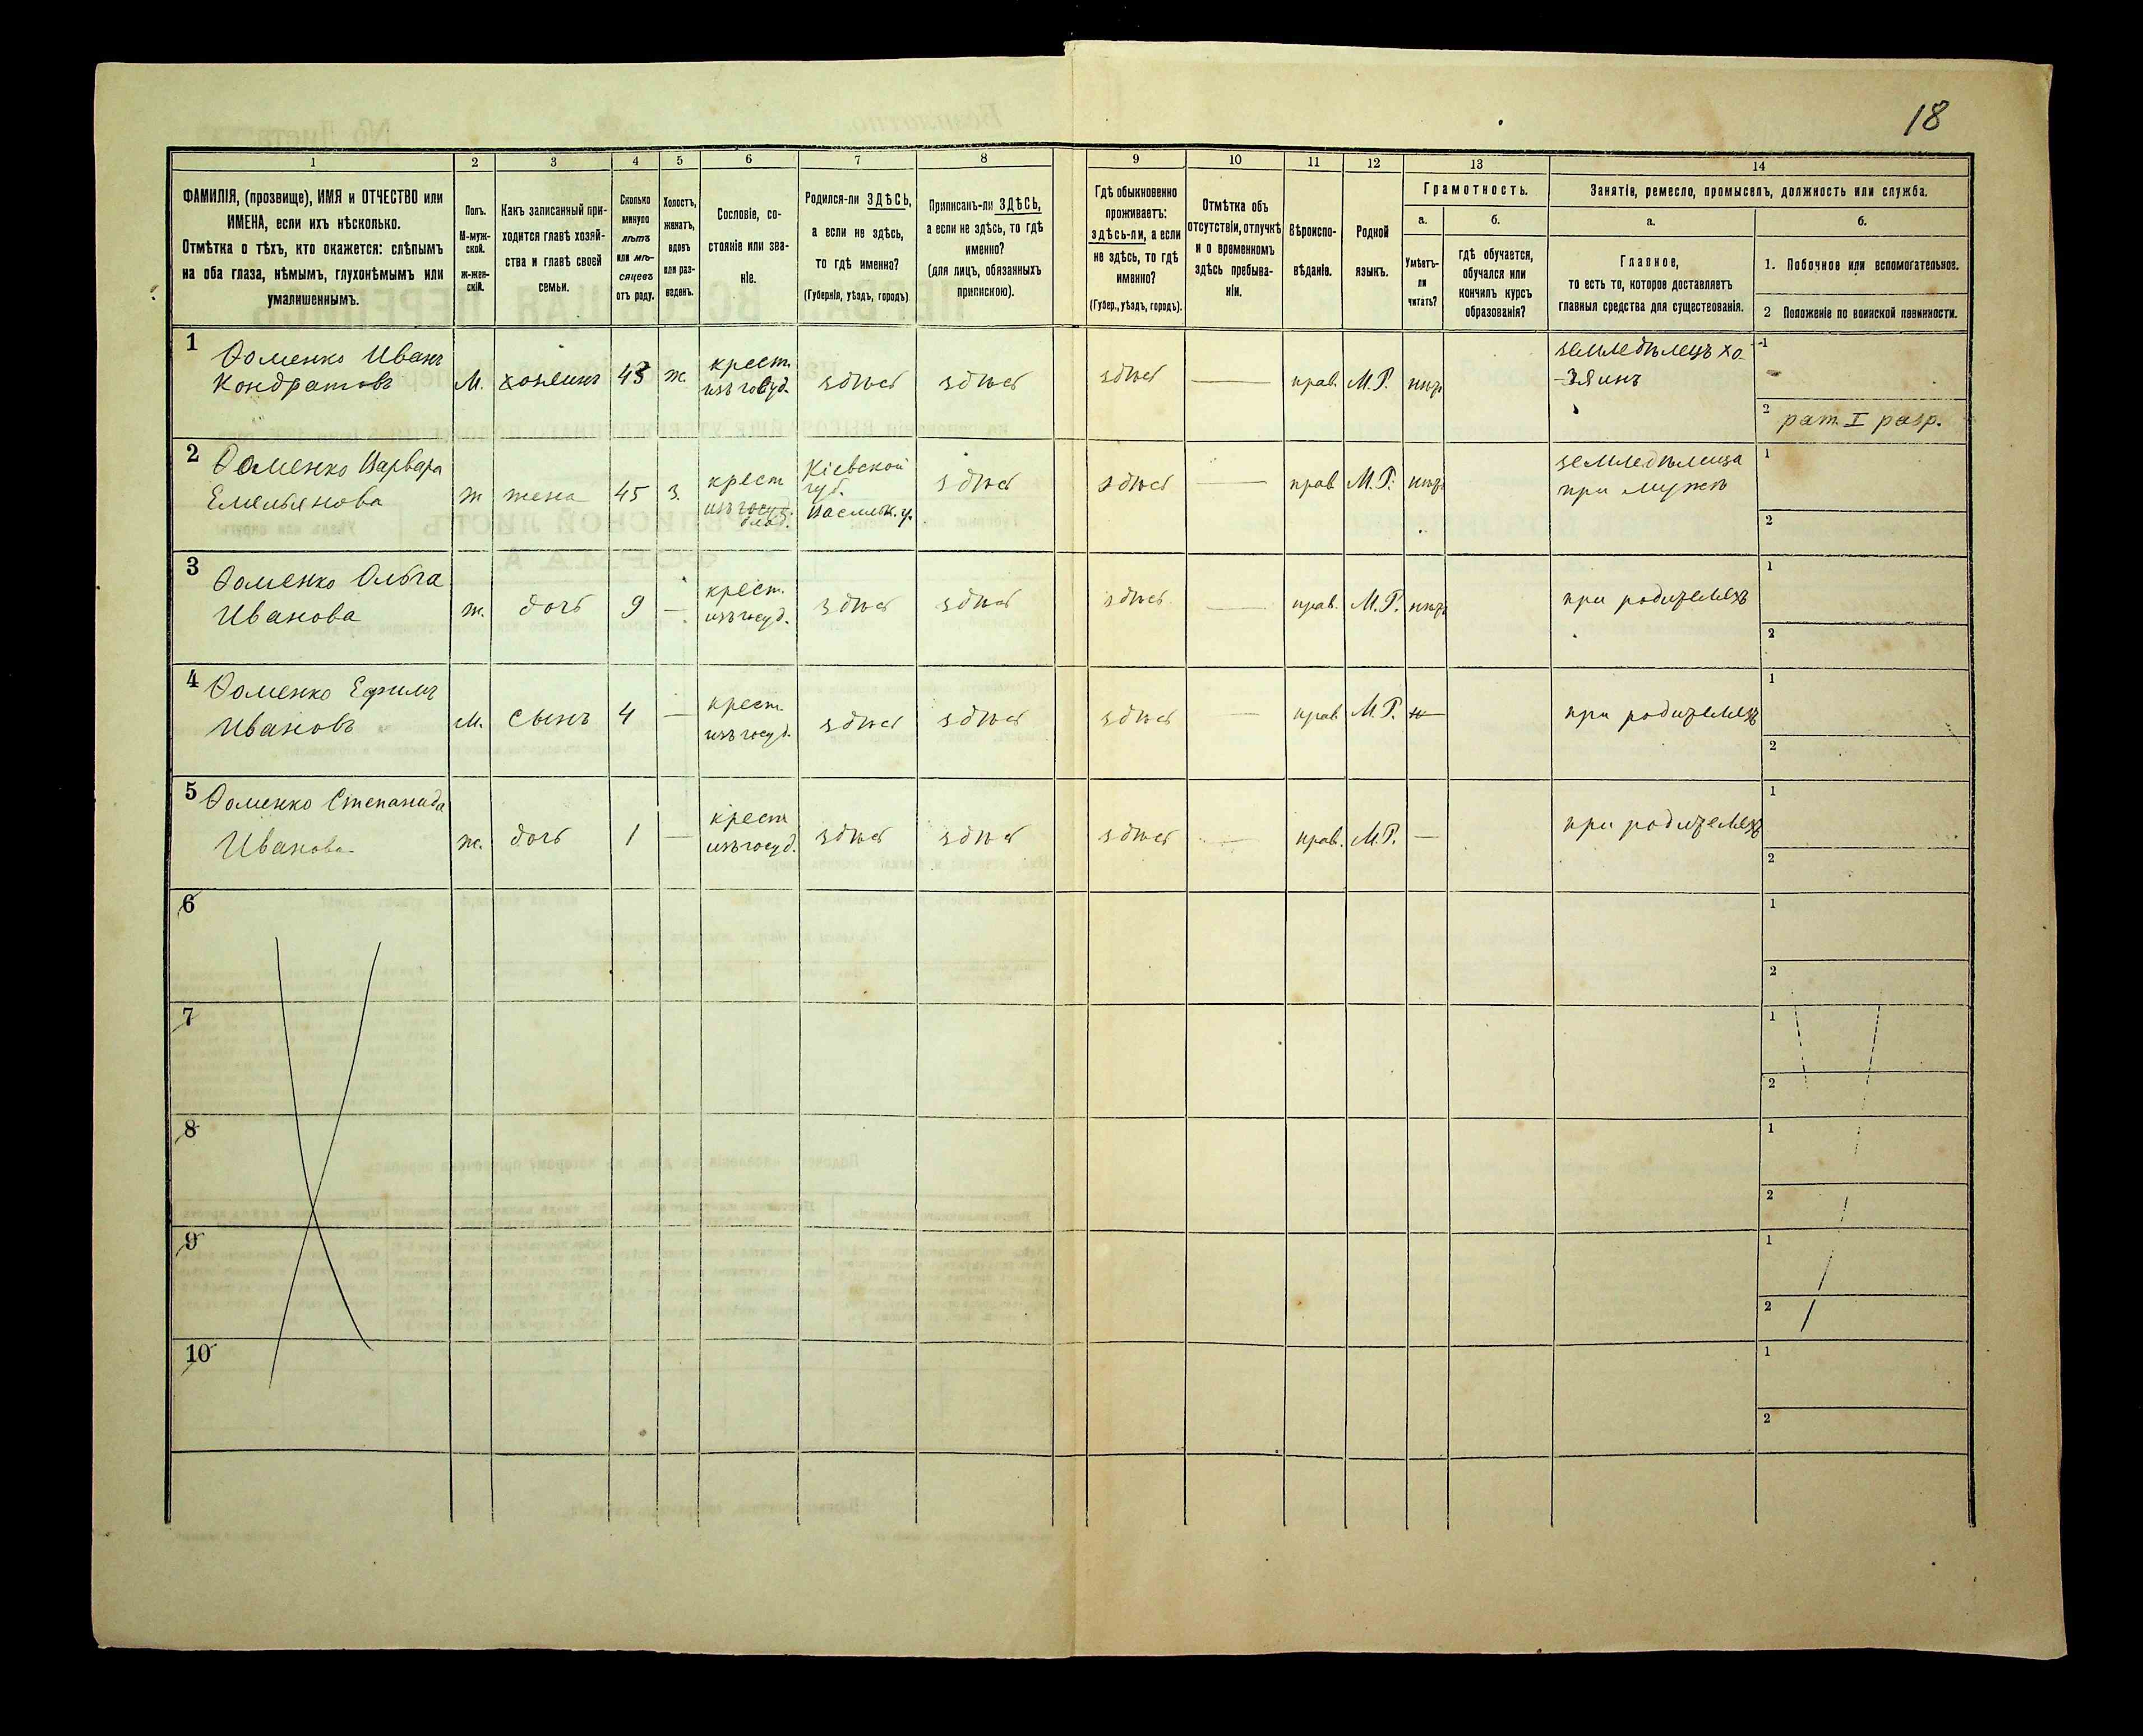 18
1
2
3
4
5
6
7
8
9
10
11
12
13
14
ФАМИЛІЯ, (прозвище), ИМЯ и ОТЧЕСТВО или
ИМЕНА, если ихъ нѣсколько.
Отмѣтка о тѣхъ, кто окажется: слѣпымъ
на оба глаза, нѣмымъ, глухонѣмымъ или
умалишеннымъ.
Полъ.
М-муж-
ской.
ж-жен-
скій.
Какъ записанный при-
ходится главѣ хозяй-
ства и главѣ своей
семьи.
Сколько
минуло
лѣтъ
или мѣ-
сяцевъ
отъ роду.
Холостъ,
женатъ,
вдовъ
или раз-
веденъ.
Сословіе, со-
стояніе или зва-
ніе.
Родился-ли ЗДѢСЬ,
а если не здѣсь,
то гдѣ именно?
(Губернія, уѣздъ, городъ)
Приписанъ-ли ЗДѢСЬ,
а если не здѣсь, то гдѣ
именно?
(для лицъ, обязанныхъ
припискою).
Гдѣ обыкновенно
проживаетъ:
здѣсь-ли, а если
не здѣсь, то гдѣ
именно?
(Губер., уѣздъ, городъ).
Отмѣтка объ
отсутствіи, отлучкѣ
и о временномъ
здѣсь пребыва-
ніи.
Вѣроиспо-
вѣданіе.
Родной
языкъ.
Грамотность.
а.
Умѣетъ-
ли
читать?
б.
гдѣ обучается,
обучался или
кончилъ курсъ
образованія?
Занятіе, ремесло, промыселъ, должность или служба.
а.
Главное,
то есть то, которое доставляетъ
главныя средства для существованія.
б.
1. Побочное или вспомогательное.
2 Положеніе по воинской повинности.
1
Ѳоменко Иванъ
Кондратовъ
М.
хозяинъ
43
ж.
крест.
изъ госуд.
здѣсь
здѣсь
здѣсь
—
прав.
М.Р.
нѣтъ
земледѣлецъ хо-
зяинъ
1
2 рат. I разр.
2
Ѳоменко Варвара
Емельянова
ж
жена
45
з.
крест
изъ госуд.
Кіевской
губ.
Васильк. у.
здѣсь
здѣсь
—
прав
М.Р.
нѣтъ
земледѣлица
при мужѣ
1
2
3
Ѳоменко Ольга
Иванова
ж.
дочь
9
—
крест.
изъ госуд.
здѣсь
здѣсь
здѣсь
—
прав.
М.Р.
нѣтъ
при родителяхъ
1
2
4
Ѳоменко Ефимъ
Ивановъ
М.
сынъ
4
—
крест.
изъ госуд.
здѣсь
здѣсь
здѣсь
—
прав
М.Р.
—
при родителяхъ
1
2
5
Ѳоменко Степанида
Иванова
ж.
дочь
1
—
крест
изъ госуд.
здѣсь
здѣсь
здѣсь
—
прав.
М.Р.
—
при родителяхъ
1
2
6
1
2
7
1
2
8
1
2
9
1
2
10
1
2